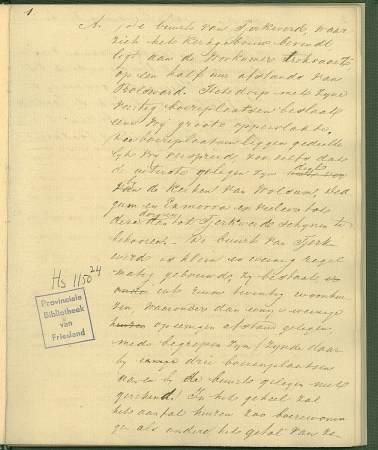 1.
A. De buurt van Tjerkwerd, waar
zich het Kerkgebouw bevindt
ligt aan de Workumer trekvaart
op een half uur afstands van
Bolsward. Het dorp met zyne
veertig boereplaatsen beslaat
eene vry groote oppervlakte,
boereplaatsen liggen gedeelte-
lyk vry verspreid, zoo zelfs dat
de uiterste gelegen zyn
van de Kerken van Wolsum, Ded
gum en Exmorra en veeleer tot
deze dorpen dan tot Tjerkwerd schynen te
behooren. - De buurt van Tjerk
werd is klein en weinig regel
matig gebouwd, zy bestaat
uit ruim twintig woonhui
zen, waaronder dan eenige weinige
op eenigen afstand gelegen,
mede begrepen zyn (zynde daar
by drie boereplaatsen
van en by de buurt gelegen niet
gerekend.) In het geheel zal
het aantal huizen zoo boerewonin
gen als andere het getal van ze-
Hs 1150 24
Provinciale
Bibliotheek
van
Friesland